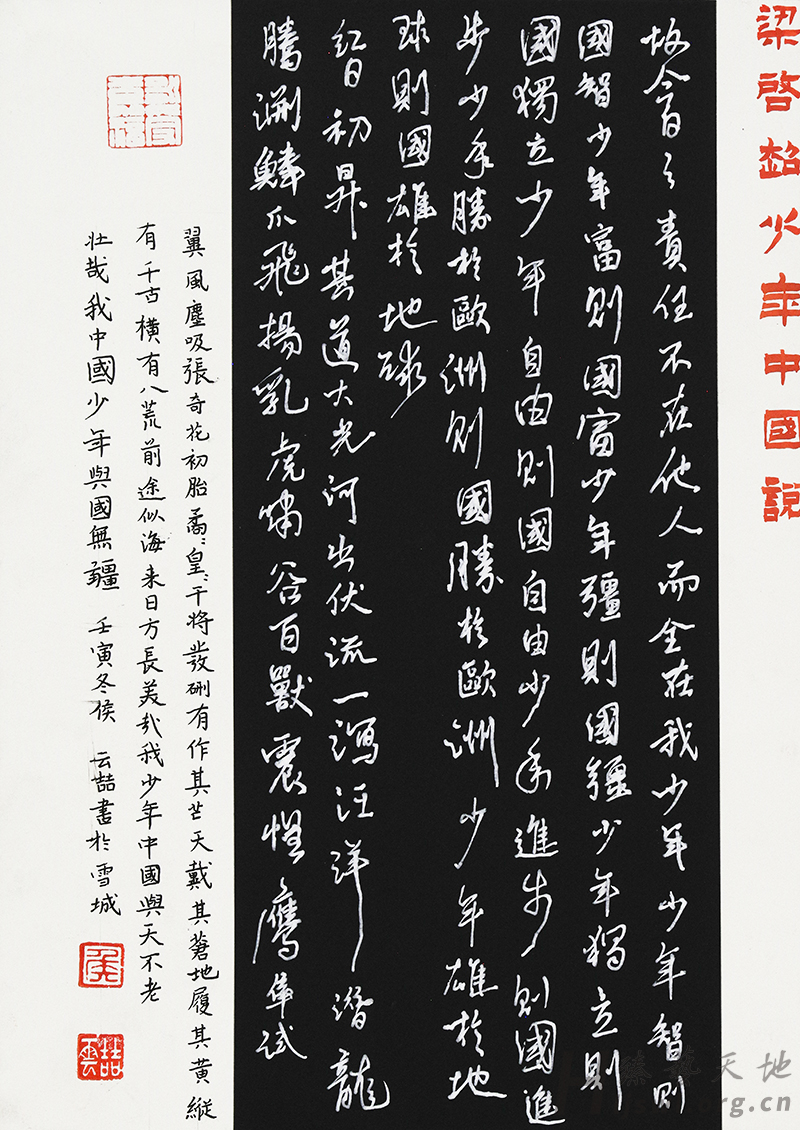 梁啓超少年中國説
故今日之責任不在他人而全在我少年少年智則
國智少年富則國富少年彊則國疆少年獨立則
國獨立少年自由則國自由少年進步則國進
步少年勝於歐洲則國勝於歐洲少年雄於地
球則國雄於地球
紅日初昇其道大光河出伏流一瀉汪洋潛龍
騰淵鱗爪飛揚乳虎嘯谷百獸震惶鷹隼試
翼風塵吸張奇花初胎矞〻皇〻干將發硎有作其芒天戴其蒼地履其黃縱
有千古橫有八荒前途似海来日方長美哉我少年中國與天不老
壯哉我中國少年與國無疆 壬寅冬侯 云喆書於雪城
侯
云喆
天地
.org.cn